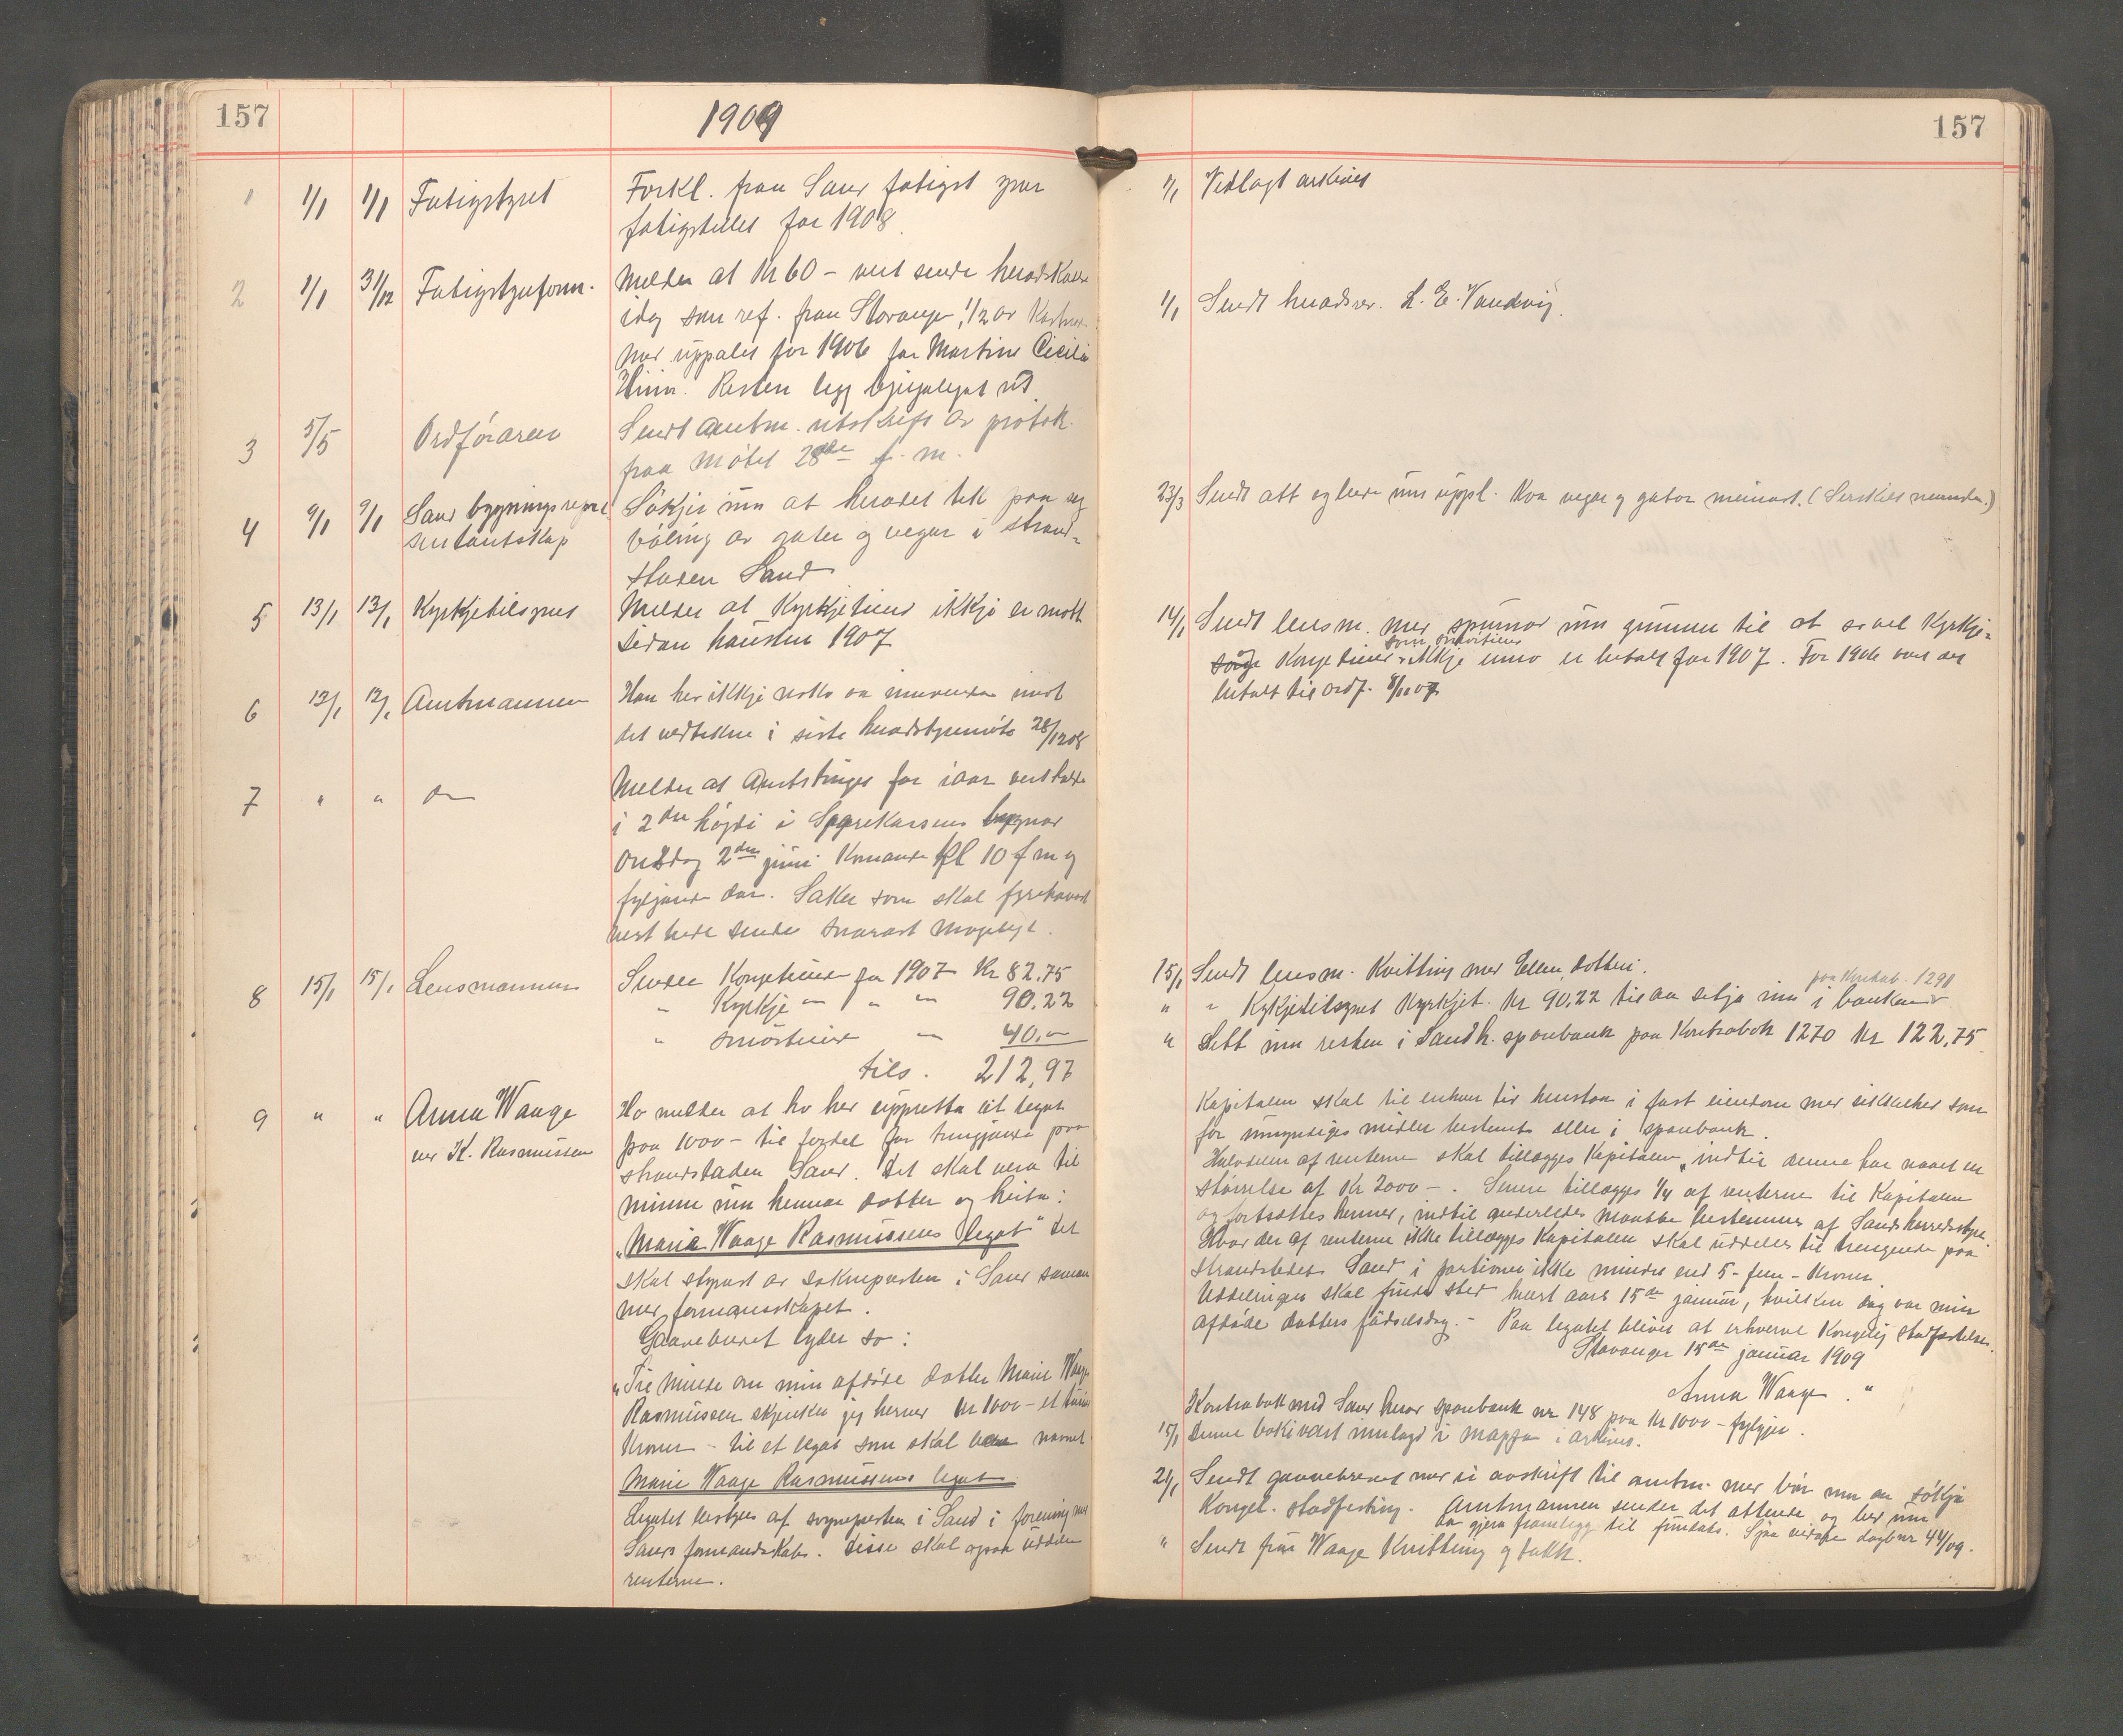 157
1909
1 1/1 1/1 Fatigstyret Forkl. fraa Sand fatigst yver
fatigstellet for 1908.
2 1/1 31/12 Fatigstyreform. Melder at Kr 60 – vert sende heradskassa
idag som ref. fraa Stavanger, 1/2 av
uppald for 1906 for Martine Cicilie
Resten legg ut
3 5/5 Ordföraren Sendt amtm. utskrift av protok.
fraa møtet 28de f. m.
4 9/1 9/1 Sand bygningsrepre- Sökjer um at heradet tek paa seg
sentantskap böting av gater og vegar i strand-
staden Sand
5 13/1 13/1 Kyrkjetilsynet Melder at Kyrkjetiend ikkje er mott
sidan hausten 1907
6 12/1 12/1 Amtmannen Han her ikkje noko aa innvenda imot
det vedtekne i siste heradstyremøte 28/12 08
7 " " do Melder at Amtstinget for iaar vert halde
i 2den högdi i Sparekassens bygnad
Onsdag 2den juni Komande kl 10 f m og
fylgjande dar. Saker som skal fyrehavast
vert bede sende snarast mogelegt.
8 15/1 15/1 Lensmannen Sender Kongetiend for 1907 Kr 82,75
" Kyrkje — " — 90,22
" smörtiend — 40,—
tils. 212,97
9 " " Anna Waage Ho melder at ho her uppretta eit legat
ved K. Rasmussen paa 1000 – til fordel for trengjande paa
strandstaden Sand. Det skal vera til
minne um hennar dotter og heita:
„Maria Waage Rasmussens legat" Det
skal styrast av soknepresten i Sand saman
med formannskapet.
Gaavebrevet lyder so:
„Til minde om min afdöde datter Marie Waage
Rasmussen skjenker jeg herved Kr 1000 – et tusen
Kroner – til et legat som skal bære navnet
Marie Waage Rasmussens legat
Legatet bestyres af sognepresten i Sand i forening med
Sands formandskab. Disse skal ogsaa uddele
renterne.
157
1/1 Vedlagt arkivet
1/1 Sendt heradskas. L. E. Vandvig.
23/3 Sendt att og bede um uppl. Kva vegar og gator meinast. (Serskilt nemnda.)
14/1 Sendt lensm. med spurnad um grunnen til at so vel Kyrkje-
som
Kongetiend ikkje enno er betalt for 1907. For 1906 vart det
betalt til ordf. 8/11 07
15/1 Sendt lensm. Kvitting med Ellen, dotteri.
paa Kontrab. 1291
" " Kyrkjetilsynet Kyrkjet. Kr 90,22 til aa setja inn i banken
" Sett inn resten i Sand h. sparebank paa Kontrabok 1270 Kr 122,75
Kapitalen skal til enhver tid henstaa i fast eiendom med sikkerhed som
for umyndiges midler bestemt eller i sparebank.
Halvdelen af renterne skal tillægges Kapitalen, indtil denne har naaet en
størrelse af Kr 2000 –. Senere tillægges 1/4 af renterne til Kapitalen
og fortsættes hermed, indtil anderledes maatte bestemmes af Sands herredsstyre.
Hvad der af renterne ikke tillægges Kapitalen skal uddeles til trengende paa
Strandstedet Sand i portioner ikke mindre end 5 – fem – Kroner.
Uddelingen skal finde sted hvert aars 15de januar, hvilken dag var min
afdöde datters födselsdag. – Paa legatet blives at erhverve Kongelig stadfæstelse.
Stavanger 15de januar 1909
Anna Waage."
Kontrabok med Sand herad sparebank nr 148 paa Kr 1000 – fylgjer.
15/1 Denne boki vart innlagd i mappa i arkivet.
21/1 Sendt gaavebrevet med ei avskrift til amtm. med bön um aa sökja
Kongel. stadfesting. Amtmannen sender det attende og bed um
aa gjera framlegg til fundats. Sjaa vidare dagb nr 44/09.
" Sendt fru Waage Kvitting og takk.